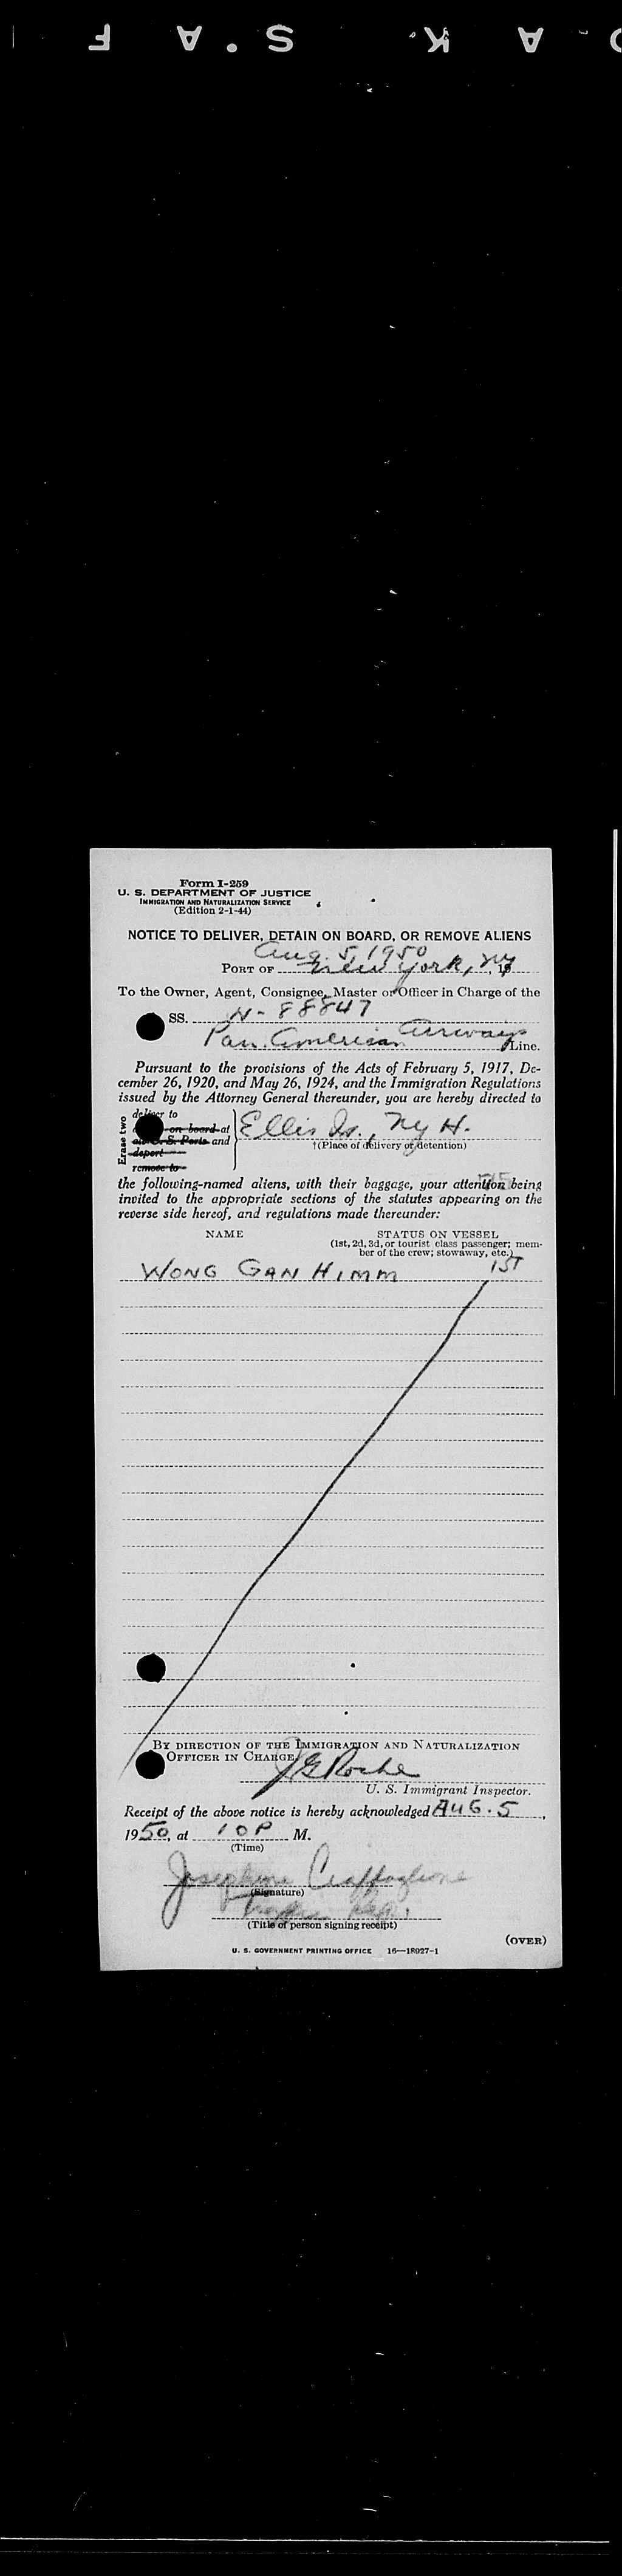 Form I-259
U. S. DEPARTMENT OF JUSTICE
IMMIGRATION AND NATURALIZATION SERVICE
(Edition 2-1-44)
NOTICE TO DELIVER, DETAIN ON BOARD, OR REMOVE ALIENS
Aug. 5, 1950
PORT OF New York, NY 19
To the Owner, Agent, Consignee, Master or Officer in Charge of the
SS. N-88847
Pan American Airways Line.
Pursuant to the provisions of the Acts of February 5, 1917, De-
cember 26, 1920, and May 26, 1924, and the Immigration Regulations
issued by the Attorney General thereunder, you are hereby directed to
Erase two
deliver to
on board at
U. S. Ports and
deport
remove to
Ellis Is., NY H.
†(Place of delivery or detention)
the following-named aliens, with their baggage, your attention being
invited to the appropriate sections of the statutes appearing on the
reverse side hereof, and regulations made thereunder:
NAME STATUS ON VESSEL
(1st, 2d, 3d, or tourist class passenger; mem-
ber of the crew; stowaway, etc.)
WONG GAN HIMM 1ST
BY DIRECTION OF THE IMMIGRATION AND NATURALIZATION
OFFICER IN CHARGE
J E Roche
U. S. Immigrant Inspector.
Receipt of the above notice is hereby acknowledged AUG. 5,
1950, at 10 P M.
(Time)
Josephine
(Signature)
(Title of person signing receipt)
(OVER)
U. S. GOVERNMENT PRINTING OFFICE 16—18027-1